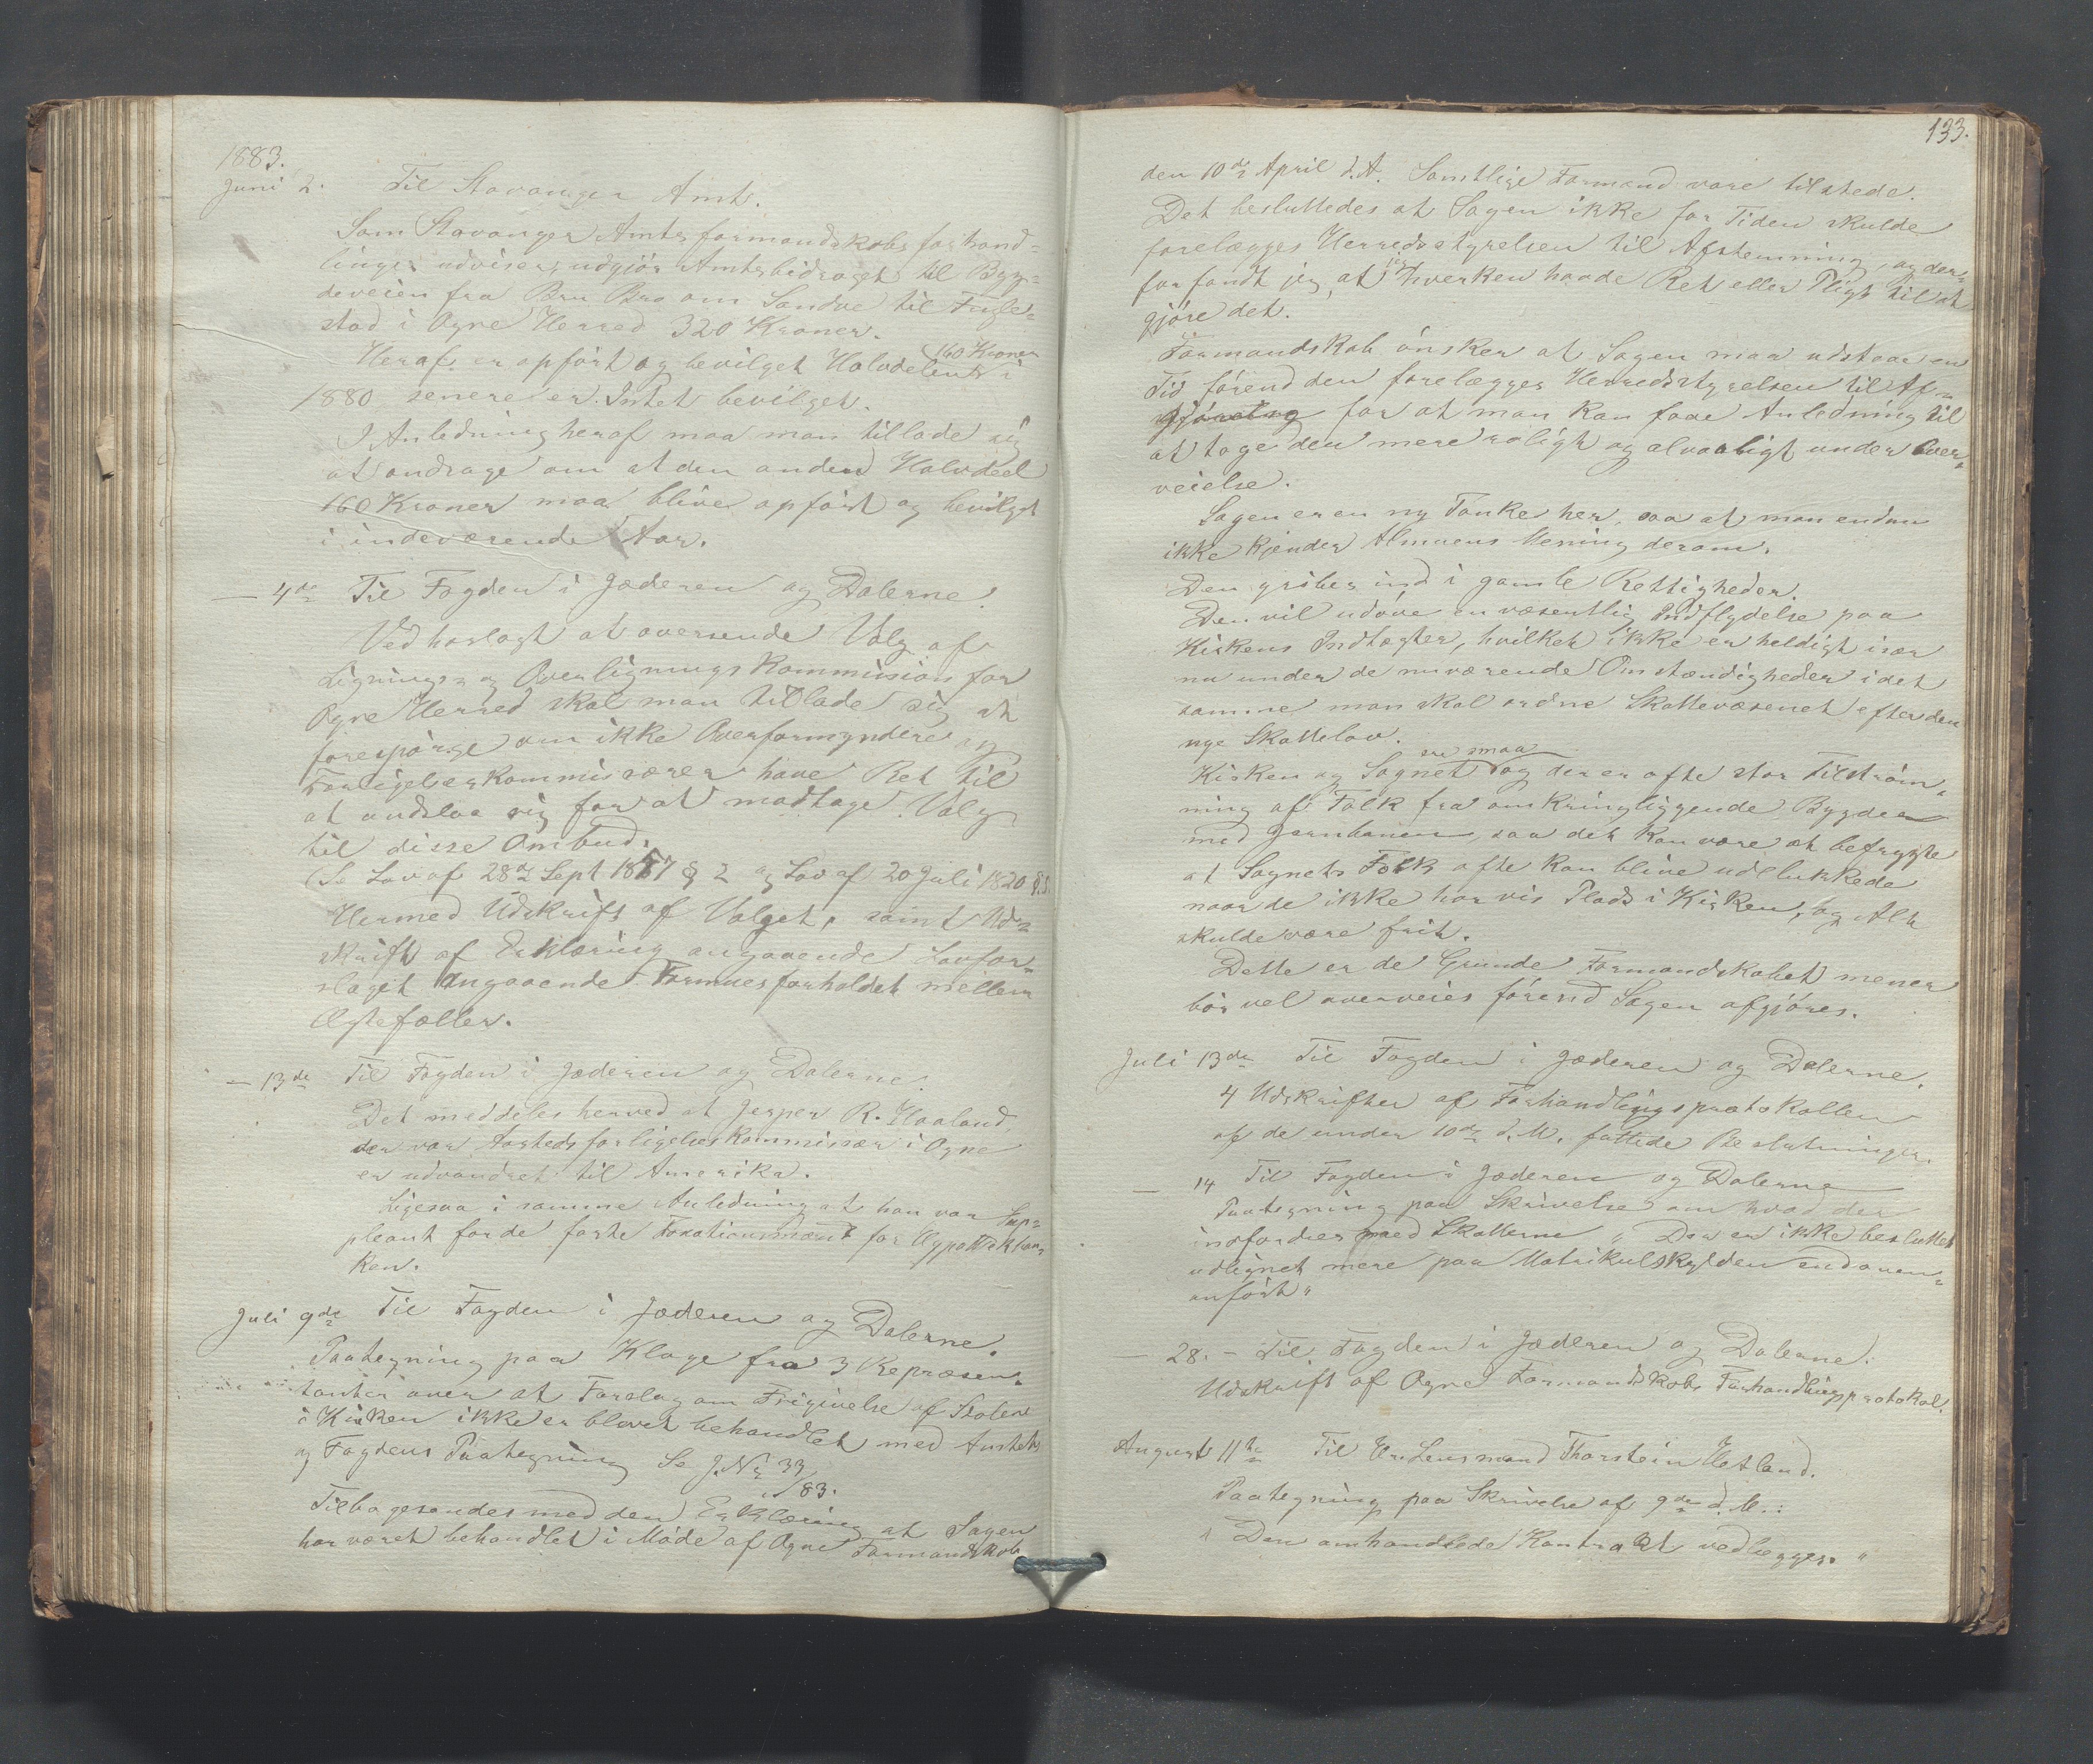 1883.
Juni 2. Til Stavanger Amt.
Som Stavanger Amtsformandskabs forhand=
linger udviser, udgjör Amtsbidraget til Byg=
deveien fra Bru Bro om Sandve til Fugle=
stad i Ogne Herred 320 Kroner.
Heraf er opfört og bevilget Halvdelen 160 Kroner i
1880 senere er Intet bevilget.
I Anledning heraf maa man tillade sig
at andrage om at den anden Halvdeel
160 Kroner maa blive opfört og bevilget
i indeværende Aar.
— 4de Til Fogden i Jæderen og Dalerne.
Vedhoslagt at oversende Valg af
Lignings= og Overligningskommission for
Ogne Herred skal man tillade sig at
forespörge om ikke Overformyndere og
Forligelseskommissærer have Ret til
at undslaa sig for at modtage Valg
til disse Ombud.
(Se Lov af 28de Sept 1857 § 2 og Lov af 20 Juli 1820 §.5.
Hermed Udskrift af Valget, samt Ud=
skrift af Erklæring angaaende Lovfor=
slaget angaaende Formuesforholdet mellem
Ægtefæller.
— 13de Til Fogden i Jæderen og Dalerne.
Det meddeles herved at Jesper R. Haaland,
der var Forligelseskommissær i Ogne
er udvandret til Amerika.
Ligesaa i samme Anledning at han var Sup=
pleant for de faste Taxationsmænd for Hypothekban=
ken.
Juli 9de Til Fogden i Jæderen og Dalerne.
Paategning paa Klage fra 3 Repræsen=
tanter over at Forslag om Frigivelse af Stolene
i Kirken ikke er blevet behandlet med Amtets
og Fogdens Paategning Se J.No 33/83.
Tilbagesendes med den Erklæring at Sagen
har været behandlet i Möde af Ogne Formandskab
133.
den 10de April d.A. Samtlige Formænd vare tilstede.
Det besluttedes at Sagen ikke for Tiden skulde
forelægges Herredsstyrelsen til Afstemning, og der=
for fandt jeg, at jeg hverken havde Ret eller Pligt til at
gjöre det.
Formandskab önsker at Sagen maa udstaa en
Tid förend den forelægges Herredsstyrelsen til Af=
gjörelse for at man kan faae Anledning til
at tage den mere roligt og alvorligt under Over=
veielse.
Sagen er en ny Tanke her, saa at man endnu
ikke kjender Almuens Mening derom.
Den griber ind i gamle Rettigheder.
Den vil udöve en væsentlig Indflydelse paa
Kirkens Indtægter, hvilket ikke er heldigt især
nu under de nuværende Omstændigheder i det
samme man skal ordne Skattevæsenet efter den
nye Skattelov.
Kirken og Sognet ere smaa og der er ofte stor Tilström=
ning af Folk fra omkringliggende Bygder
med Jernbanen, saa det kan være at befrygte
at Sognets Folk ofte kan blive udelukkede
naar de ikke har vis Plads i Kirken, og Alt
skulde være frit.
Dette er de Grunde Formandskabet mener
bör vel overveies förend Sagen afgjöres.
Juli 13de Til Fogden i Jæderen og Dalerne.
4 Udskrifter af Forhandlingsprotokollen
af de under 10de d.M. fattede Beslutninger.
— 14 Til Fogden i Jæderen og Dalerne
Paategning paa Skrivelse om hvad der
indfordres med Skatterne „ Der er ikke besluttet
udlignet mere paa Matrikulskylden end oven=
anfört“
— 28. – Til Fogden i Jæderen og Dalerne.
Udskrift af Ogne Formandskabs Forhandlingsprotokol.
August 11te Til Hr. Lensmand Thorstein Hetland.
Paategning paa Skrivelse af 9de d.M.:
„ Den omhandlede Kontrakt vedlægges. “